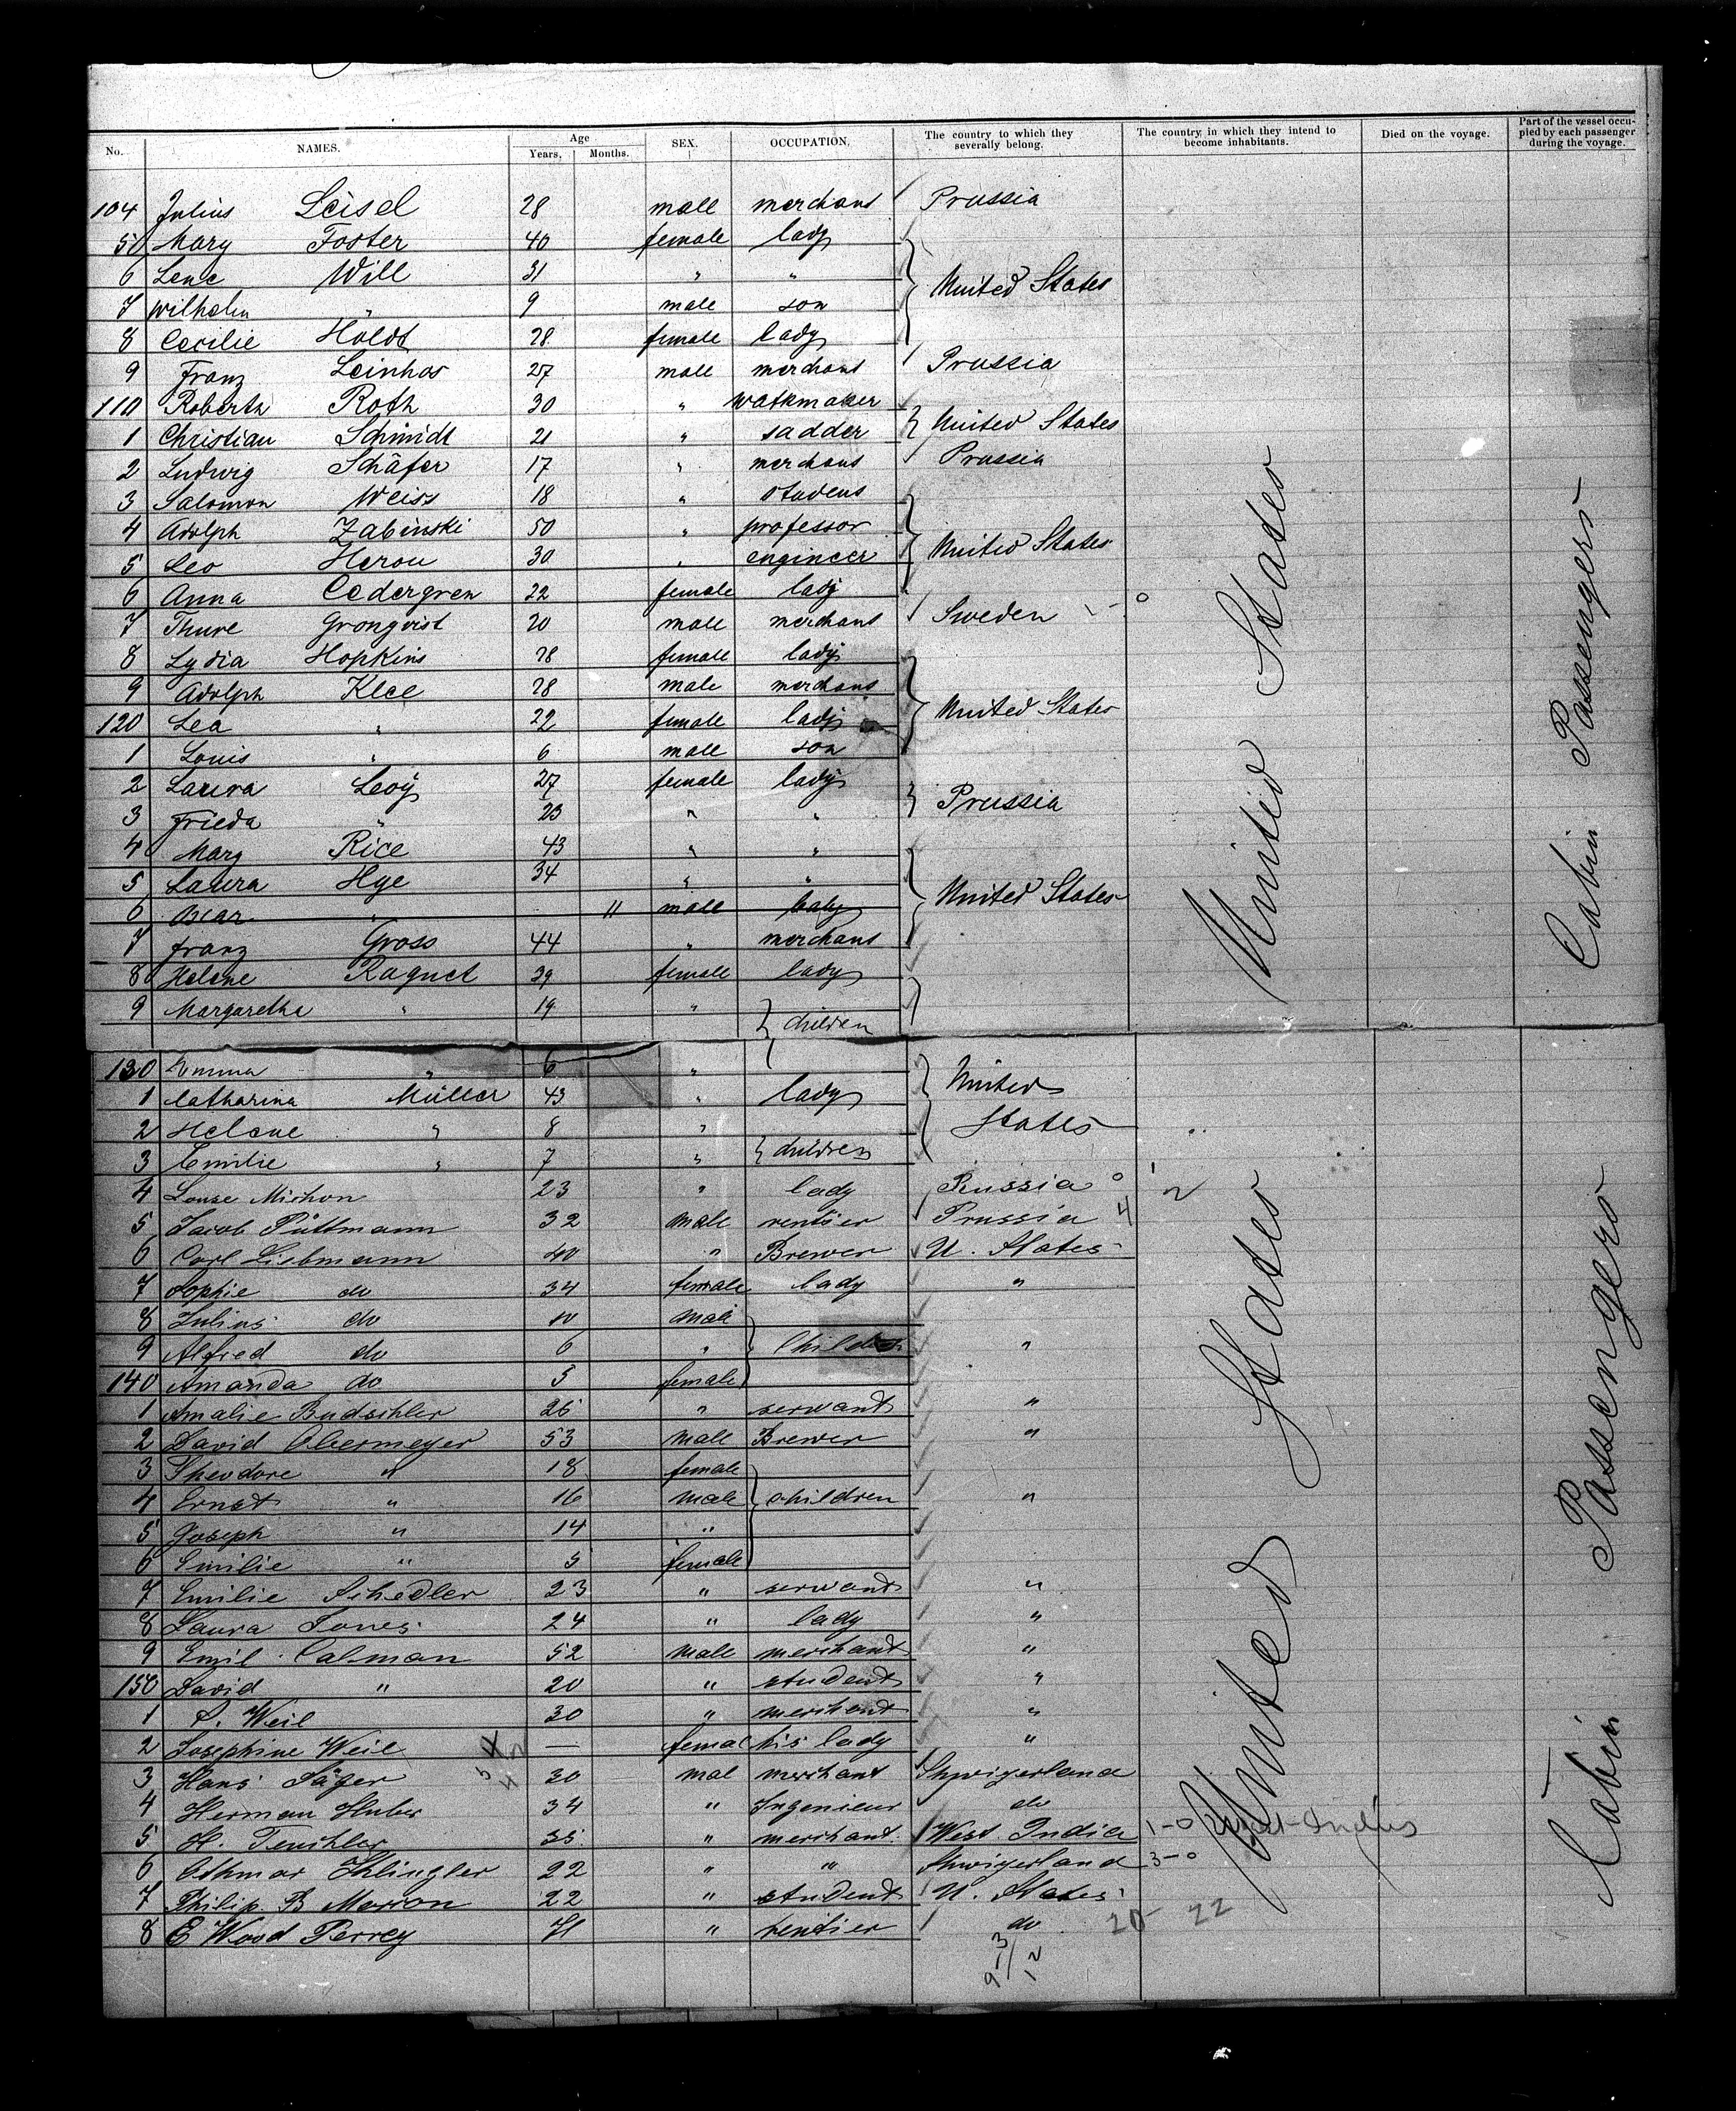 No. NAMES. Age Years. Months. SEX. OCCUPATION. The country to which they severally belong. The country in which they intend to become inhabitants. Died on the voyage. Part of the vessel occupied by each passenger during the voyage.
104 Julius Leisel 28 male merchant Prussia
5 Mary Foster 40 female lady
6 Lene Will 31 " " United States
7 Wilhelm " 9 male son
8 Cecilie Holdt 28 female lady
9 Franz Leinhos 27 male merchant Prussia
110 Roberth Roth 30 " watkmaker United States
1 Christian Schmidt 21 " sadder
2 Ludwig Schäfer 17 " merchant Prussia
3 Salomon Weiss 18 " student
4 Adolph Zabinski 50 " professor United States
5 Leo Herou 30 " engineer
6 Anna Cedergren 22 female lady
7 Thure Gronqvist 20 male merchant Sweden
8 Lydia Hopkins 28 female lady
9 Adolph Klee 28 male merchant United States
120 Lea " 22 female lady
1 Louis " 6 male son
2 Laura Levy 27 female lady Prussia
3 Frieda " 23 " "
4 Mary Rice 43 " "
5 Laura Hye 34 " " United States
6 Oscar " 11 male baby
7 Franz Gross 44 " merchant
8 Helene Raguet 39 female lady
9 Margaretha " 19 " children
130 Emma " 6 " United
1 Catharina Müller 43 " lady
2 Helene " 8 " States
3 Emilie " 7 " children
4 Louise Michon 23 " lady Russia
5 Jacob Püttmann 32 male rentier Prussia 4
6 Carl Liebmann 40 " Brewer U. States
7 Sophie do 34 female lady "
8 Julius do 10 male
9 Alfred do 6 " Children "
140 Amanda do 5 female
1 Amalie Budschler 26 " servant "
2 David Obermeyer 53 male Brewer "
3 Theodore " 18 female
4 Ernst " 16 male children "
5 Joseph " 14 "
6 Emilie " 5 female
7 Emilie Schedler 23 " servant "
8 Laura Jones 24 " lady "
9 Emil Calman 52 male merchant "
150 David " 20 " student "
1 Weil 30 " merchant "
2 Josephine Weil — femal his lady "
3 Hans Jäger 30 mal merchant Shwizerland
4 Herman Huber 34 " Ingenieur do
5 H. Teuchler 35 " merchant West India 1-0 West-Indies
6 Othmar Ihlingler 22 " " Shwizerland 3-0
7 Philip B Marron 22 " student U. States
8 E Wood Perrey " rentier do 20 22
United States
Cabin Passengers
United States
Cabin Passengers